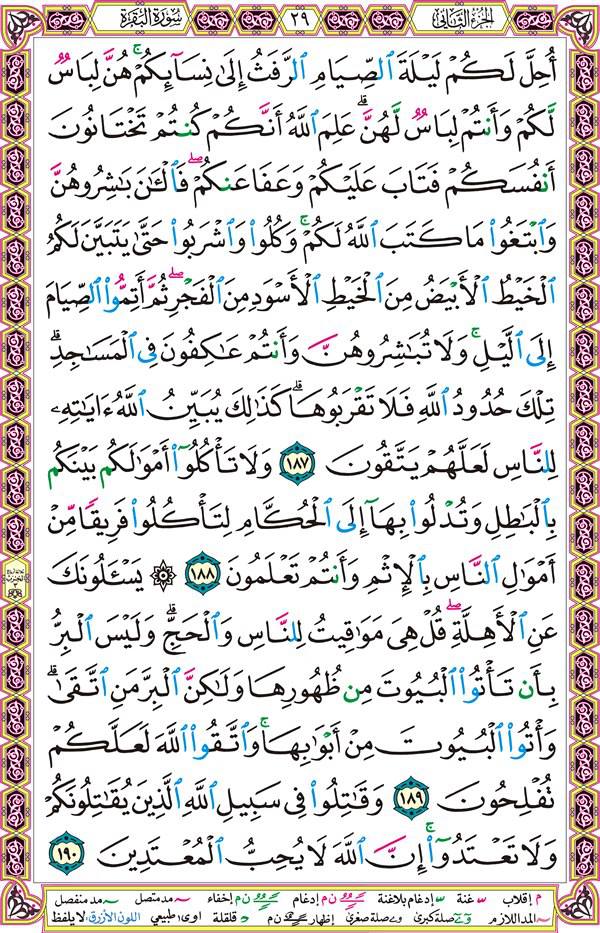 الجزء الثاني
٢٩
سورة البقرة
أُحِلَّ لَكُمْ لَيْلَةَ ٱلصِّيَامِ ٱلرَّفَثُ إِلَىٰ نِسَآئِكُمْ ۚ هُنَّ لِبَاسٌ
لَّكُمْ وَأَنتُمْ لِبَاسٌ لَّهُنَّ ۗ عَلِمَ ٱللَّهُ أَنَّكُمْ كُنتُمْ تَخْتَانُونَ
أَنفُسَكُمْ فَتَابَ عَلَيْكُمْ وَعَفَا عَنكُمْ ۖ فَٱلْـَٰٔنَ بَـٰشِرُوهُنَّ
وَٱبْتَغُوا۟ مَا كَتَبَ ٱللَّهُ لَكُمْ ۚ وَكُلُوا۟ وَٱشْرَبُوا۟ حَتَّىٰ يَتَبَيَّنَ لَكُمُ
ٱلْخَيْطُ ٱلْأَبْيَضُ مِنَ ٱلْخَيْطِ ٱلْأَسْوَدِ مِنَ ٱلْفَجْرِ ۖ ثُمَّ أَتِمُّوا۟ ٱلصِّيَامَ
إِلَى ٱلَّيْلِ ۚ وَلَا تُبَـٰشِرُوهُنَّ وَأَنتُمْ عَـٰكِفُونَ فِى ٱلْمَسَـٰجِدِ ۗ
تِلْكَ حُدُودُ ٱللَّهِ فَلَا تَقْرَبُوهَا ۗ كَذَٰلِكَ يُبَيِّنُ ٱللَّهُ ءَايَـٰتِهِۦ
لِلنَّاسِ لَعَلَّهُمْ يَتَّقُونَ ١٨٧ وَلَا تَأْكُلُوٓا۟ أَمْوَٰلَكُم بَيْنَكُم
بِٱلْبَـٰطِلِ وَتُدْلُوا۟ بِهَآ إِلَى ٱلْحُكَّامِ لِتَأْكُلُوا۟ فَرِيقًا مِّنْ
أَمْوَٰلِ ٱلنَّاسِ بِٱلْإِثْمِ وَأَنتُمْ تَعْلَمُونَ ١٨٨ ۞ يَسْـَٔلُونَكَ
عَنِ ٱلْأَهِلَّةِ ۖ قُلْ هِىَ مَوَٰقِيتُ لِلنَّاسِ وَٱلْحَجِّ ۗ وَلَيْسَ ٱلْبِرُّ
بِأَن تَأْتُوا۟ ٱلْبُيُوتَ مِن ظُهُورِهَا وَلَـٰكِنَّ ٱلْبِرَّ مَنِ ٱتَّقَىٰ ۗ
وَأْتُوا۟ ٱلْبُيُوتَ مِنْ أَبْوَٰبِهَا ۚ وَٱتَّقُوا۟ ٱللَّهَ لَعَلَّكُمْ
تُفْلِحُونَ ١٨٩ وَقَـٰتِلُوا۟ فِى سَبِيلِ ٱللَّهِ ٱلَّذِينَ يُقَـٰتِلُونَكُمْ
وَلَا تَعْتَدُوٓا۟ ۚ إِنَّ ٱللَّهَ لَا يُحِبُّ ٱلْمُعْتَدِينَ ١٩٠
م إقلاب غنة إدغام بلاغنة ن م إدغام ن م إخفاء مد متصل مد منفصل
المد اللازم صلة كبرى صلة صغرى إظهار ن م قلقلة اوى طبيعي اللون الأزرق: لا يلفظ